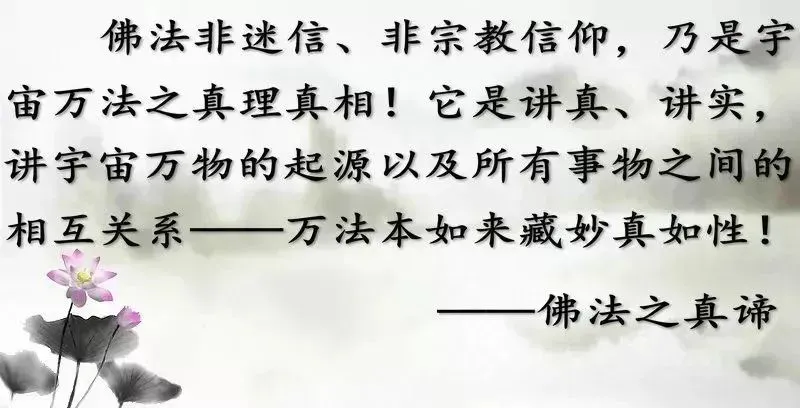 佛法非迷信、非宗教信仰，乃是宇
宙万法之真理真相！它是讲真、讲实，
讲宇宙万物的起源以及所有事物之间的
相互关系——万法本如来藏妙真如性！
——佛法之真谛